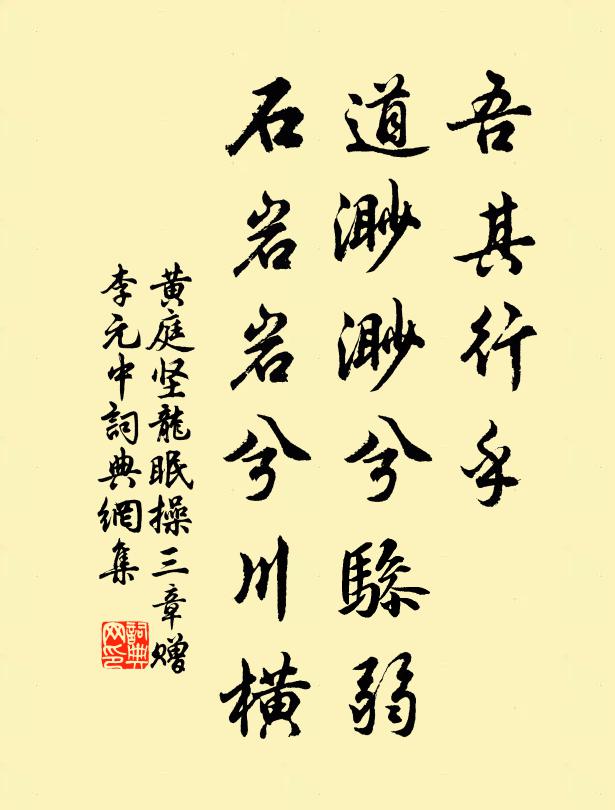 吾其行乎
道渺渺兮驂弱
石岩岩兮川横
黄庭坚龍眠操三章赠
李元中詞典網集
詞典网印